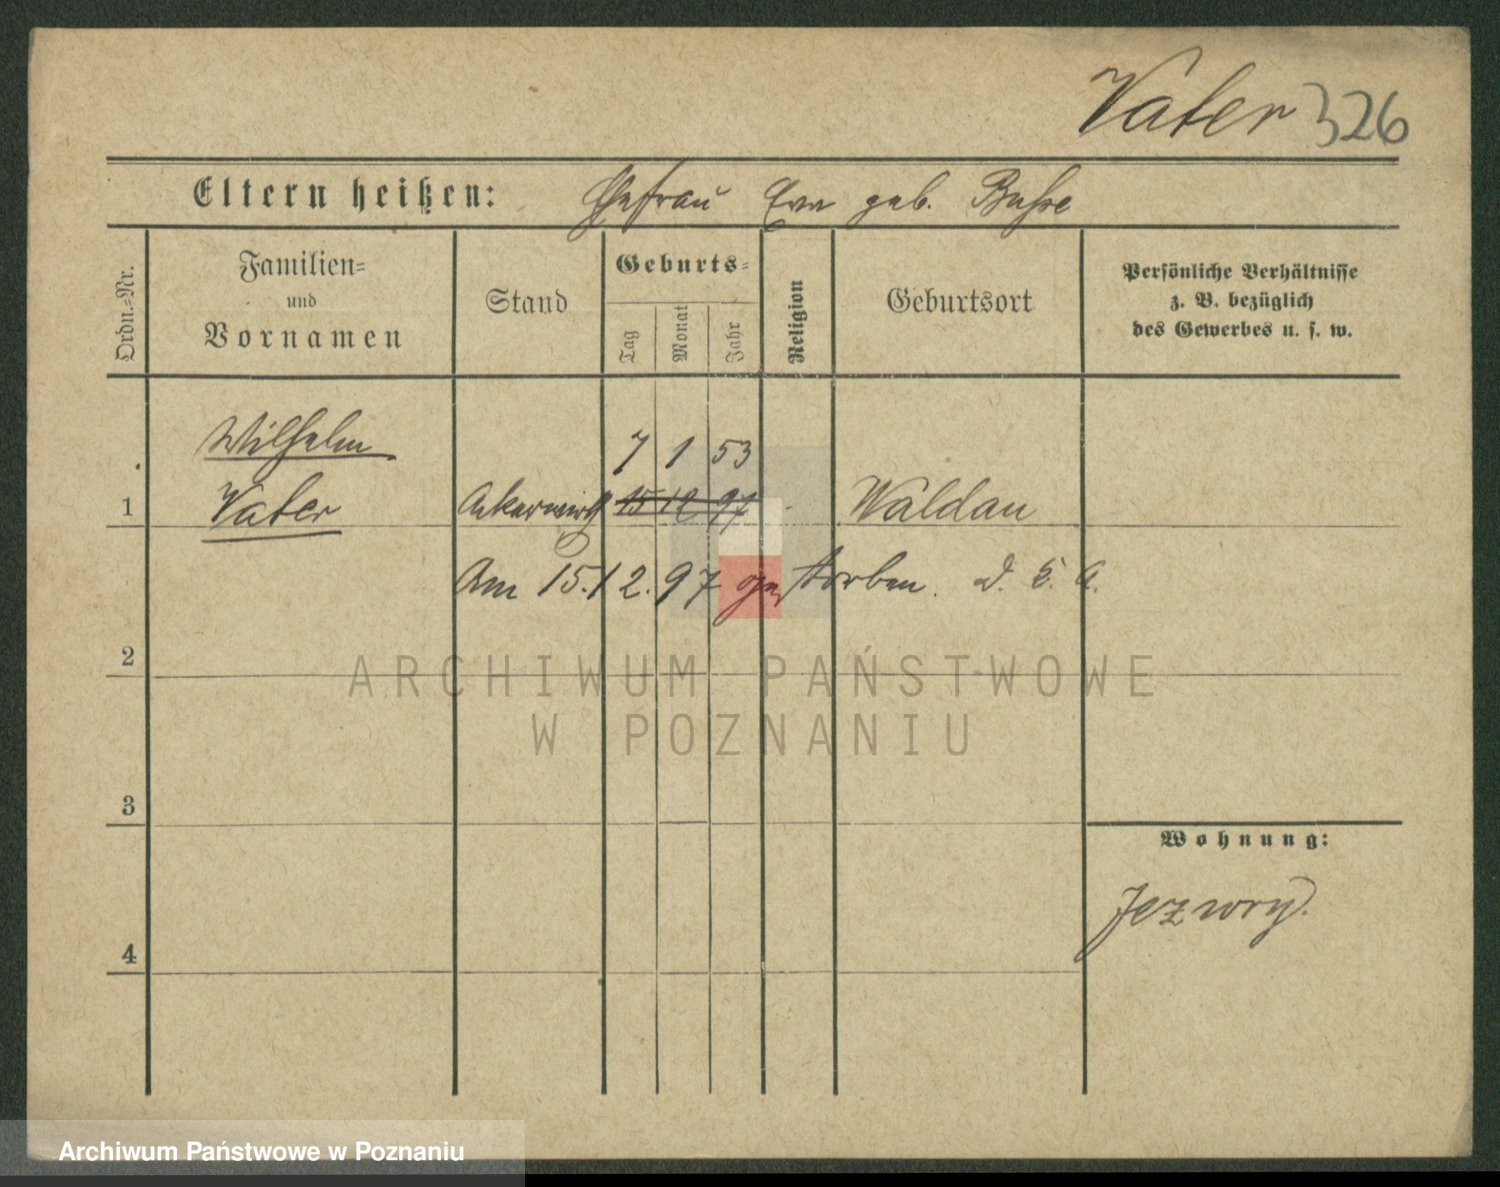 Vater 326
Eltern heißen: Ehefrau Eva geb. Buhse
Ordn.-Nr.
Familien-
und
Vornamen
Stand
Geburts-
Tag
Monat
Jahr
Religion
Geburtsort
Persönliche Verhältnisse
z. B. bezüglich
des Gewerbes u. s. w.
Wilhelm
7 1 53
1 Vater Ackerwirth 15 12 97 Waldau
Am 15.12.97 gestorben.
2
ARCHIWUM PAŃSTWOWE
W POZNANIU
3
Wohnung:
Jezwry.
4
Archiwum Państwowe w Poznaniu